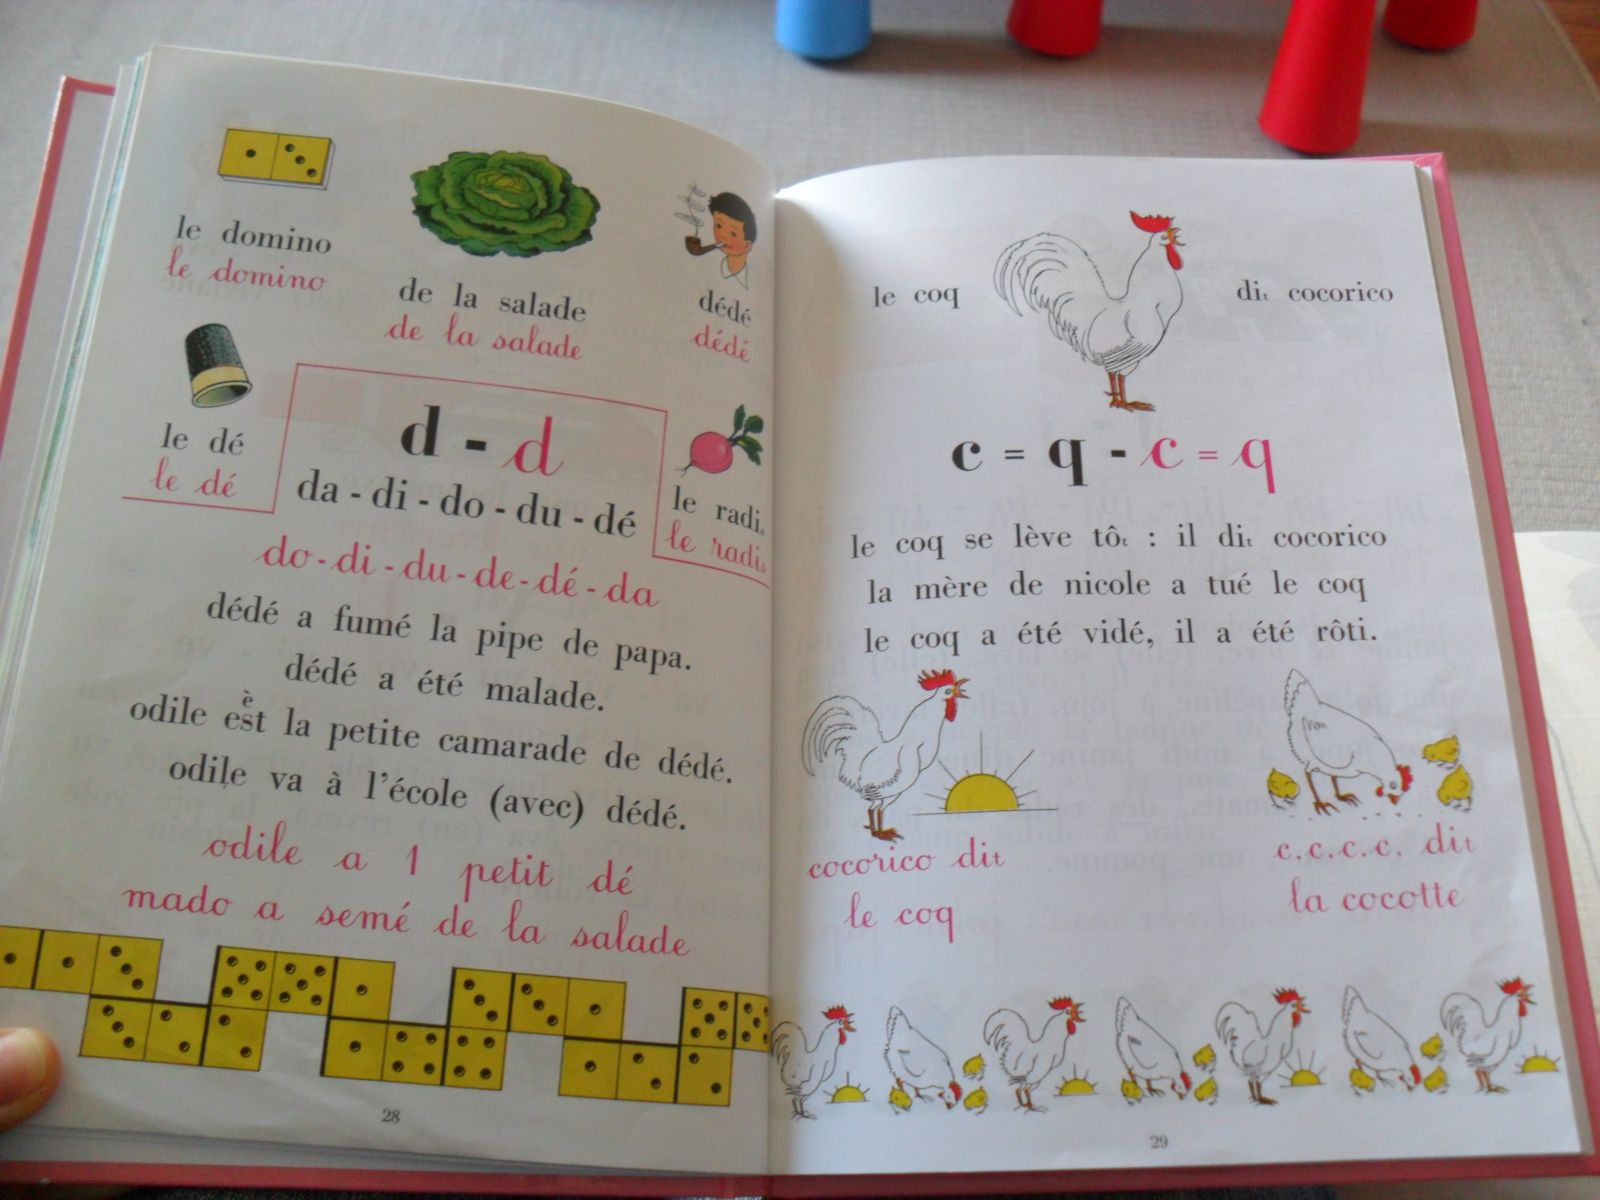 le domino
le domino
de la salade
de la salade
dédé
dédé
le dé
le dé
d - d
da - di - do - du - dé
le radis
le radis
do - di - du - de - dé - da
dédé a fumé la pipe de papa.
dédé a été malade.
è
odile est la petite camarade de dédé.
odile va à l'école (avec) dédé.
odile a 1 petit dé
mado a semé de la salade
28
le coq
dit cocorico
c = q - c = q
le coq se lève tôt : il dit cocorico
la mère de nicole a tué le coq
le coq a été vidé, il a été rôti.
cocorico dit
le coq
c.c.c.c. dit
la cocotte
29